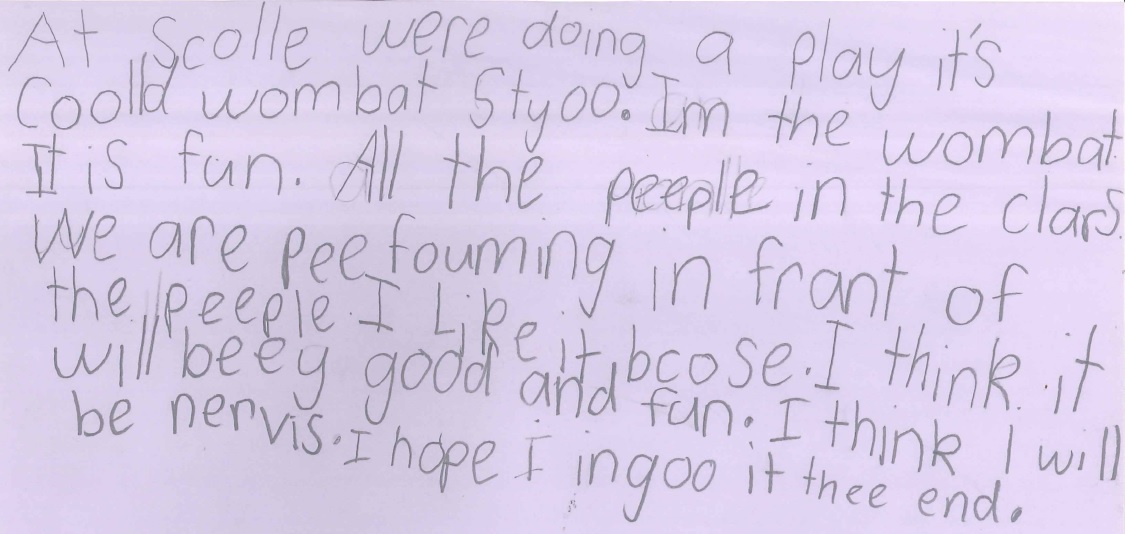 At Scolle were doing a play it's
Coolld wombat Styoo. Im the wombat
It is fun. All the peeple in the clars.
We are pee fouming in frant of
the peeple. I Like it bcose. I think it
will beey good and fun. I think I will
be nervis. I hope I ingoo it thee end.